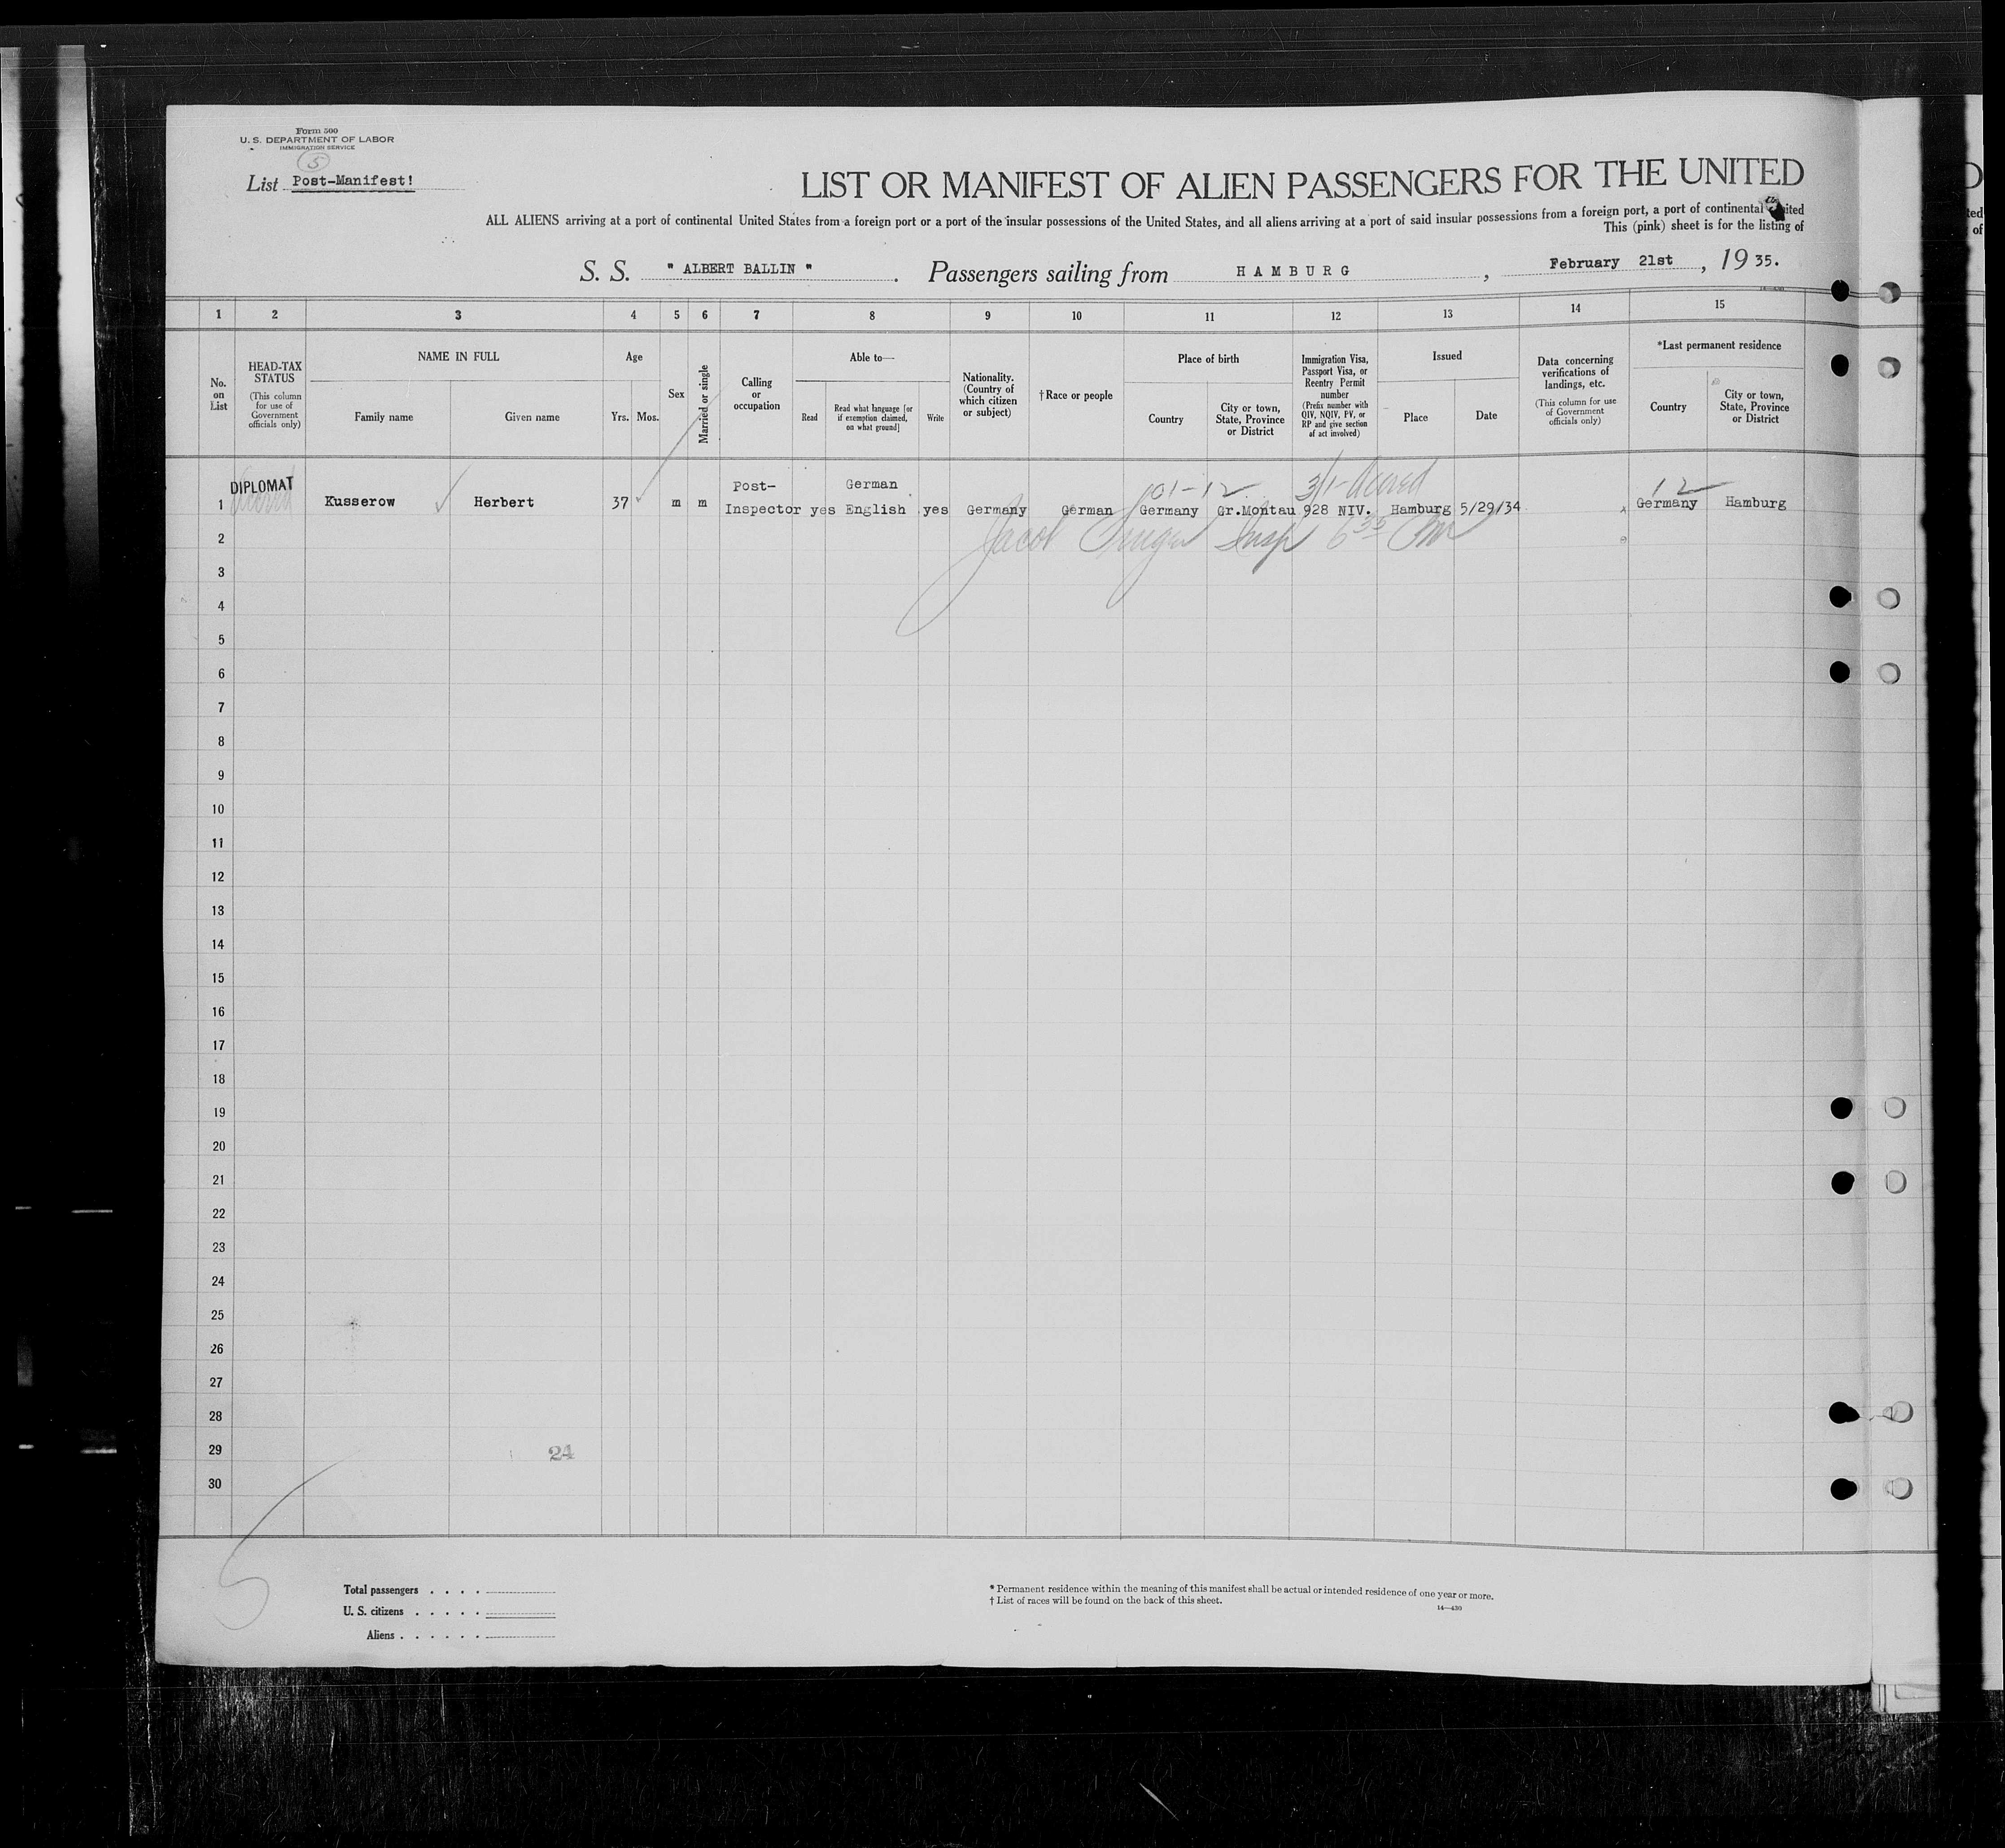 Form 500
U. S. DEPARTMENT OF LABOR
IMMIGRATION SERVICE
5
List Post-Manifest!
LIST OR MANIFEST OF ALIEN PASSENGERS FOR THE UNITED
ALL ALIENS arriving at a port of continental United States from a foreign port or a port of the insular possessions of the United States, and all aliens arriving at a port of said insular possessions from a foreign port, a port of continental United
This (pink) sheet is for the listing of
S. S. " ALBERT BALLIN " . Passengers sailing from HAMBURG , February 21st , 19 35.
1 2 3 4 5 6 7 8 9 10 11 12 13 14 15
No. on List
HEAD-TAX STATUS
(This column for use of Government officials only)
NAME IN FULL
Family name Given name
Age
Yrs. Mos.
Sex
Married or single
Calling or occupation
Able to—
Read
Read what language [or if exemption claimed, on what ground]
Write
Nationality. (Country of which citizen or subject)
†Race or people
Place of birth
Country
City or town, State, Province or District
Immigration Visa, Passport Visa, or Reentry Permit number
(Prefix number with QIV, NQIV, PV, or RP and give section of act involved)
Issued
Place Date
Data concerning verifications of landings, etc.
(This column for use of Government officials only)
*Last permanent residence
Country
City or town, State, Province or District
101-12 3/1- 12
1 DIPLOMAT Kusserow Herbert 37 m m Post-Inspector yes German English yes Germany German Germany Gr.Montau 928 NIV. Hamburg 5/29/34 Germany Hamburg
2 Jacob Insp 6 35
3
4
5
6
7
8
9
10
11
12
13
14
15
16
17
18
19
20
21
22
23
24
25
26
27
28
29 24
30
5
Total passengers . . . .
U. S. citizens . . . . .
Aliens . . . . . .
* Permanent residence within the meaning of this manifest shall be actual or intended residence of one year or more.
† List of races will be found on the back of this sheet.
14—430